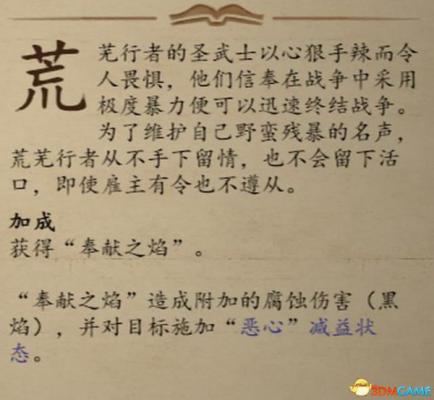 荒芜行者的圣武士以心狠手辣而令
人畏惧，他们信奉在战争中采用
极度暴力便可以迅速终结战争。
为了维护自己野蛮残暴的名声，
荒芜行者从不手下留情，也不会留下活
口，即使雇主有令也不遵从。
加成
获得“奉献之焰”。
“奉献之焰”造成附加的腐蚀伤害（黑
焰），并对目标施加“恶心”减益状
态。
3DMGAME